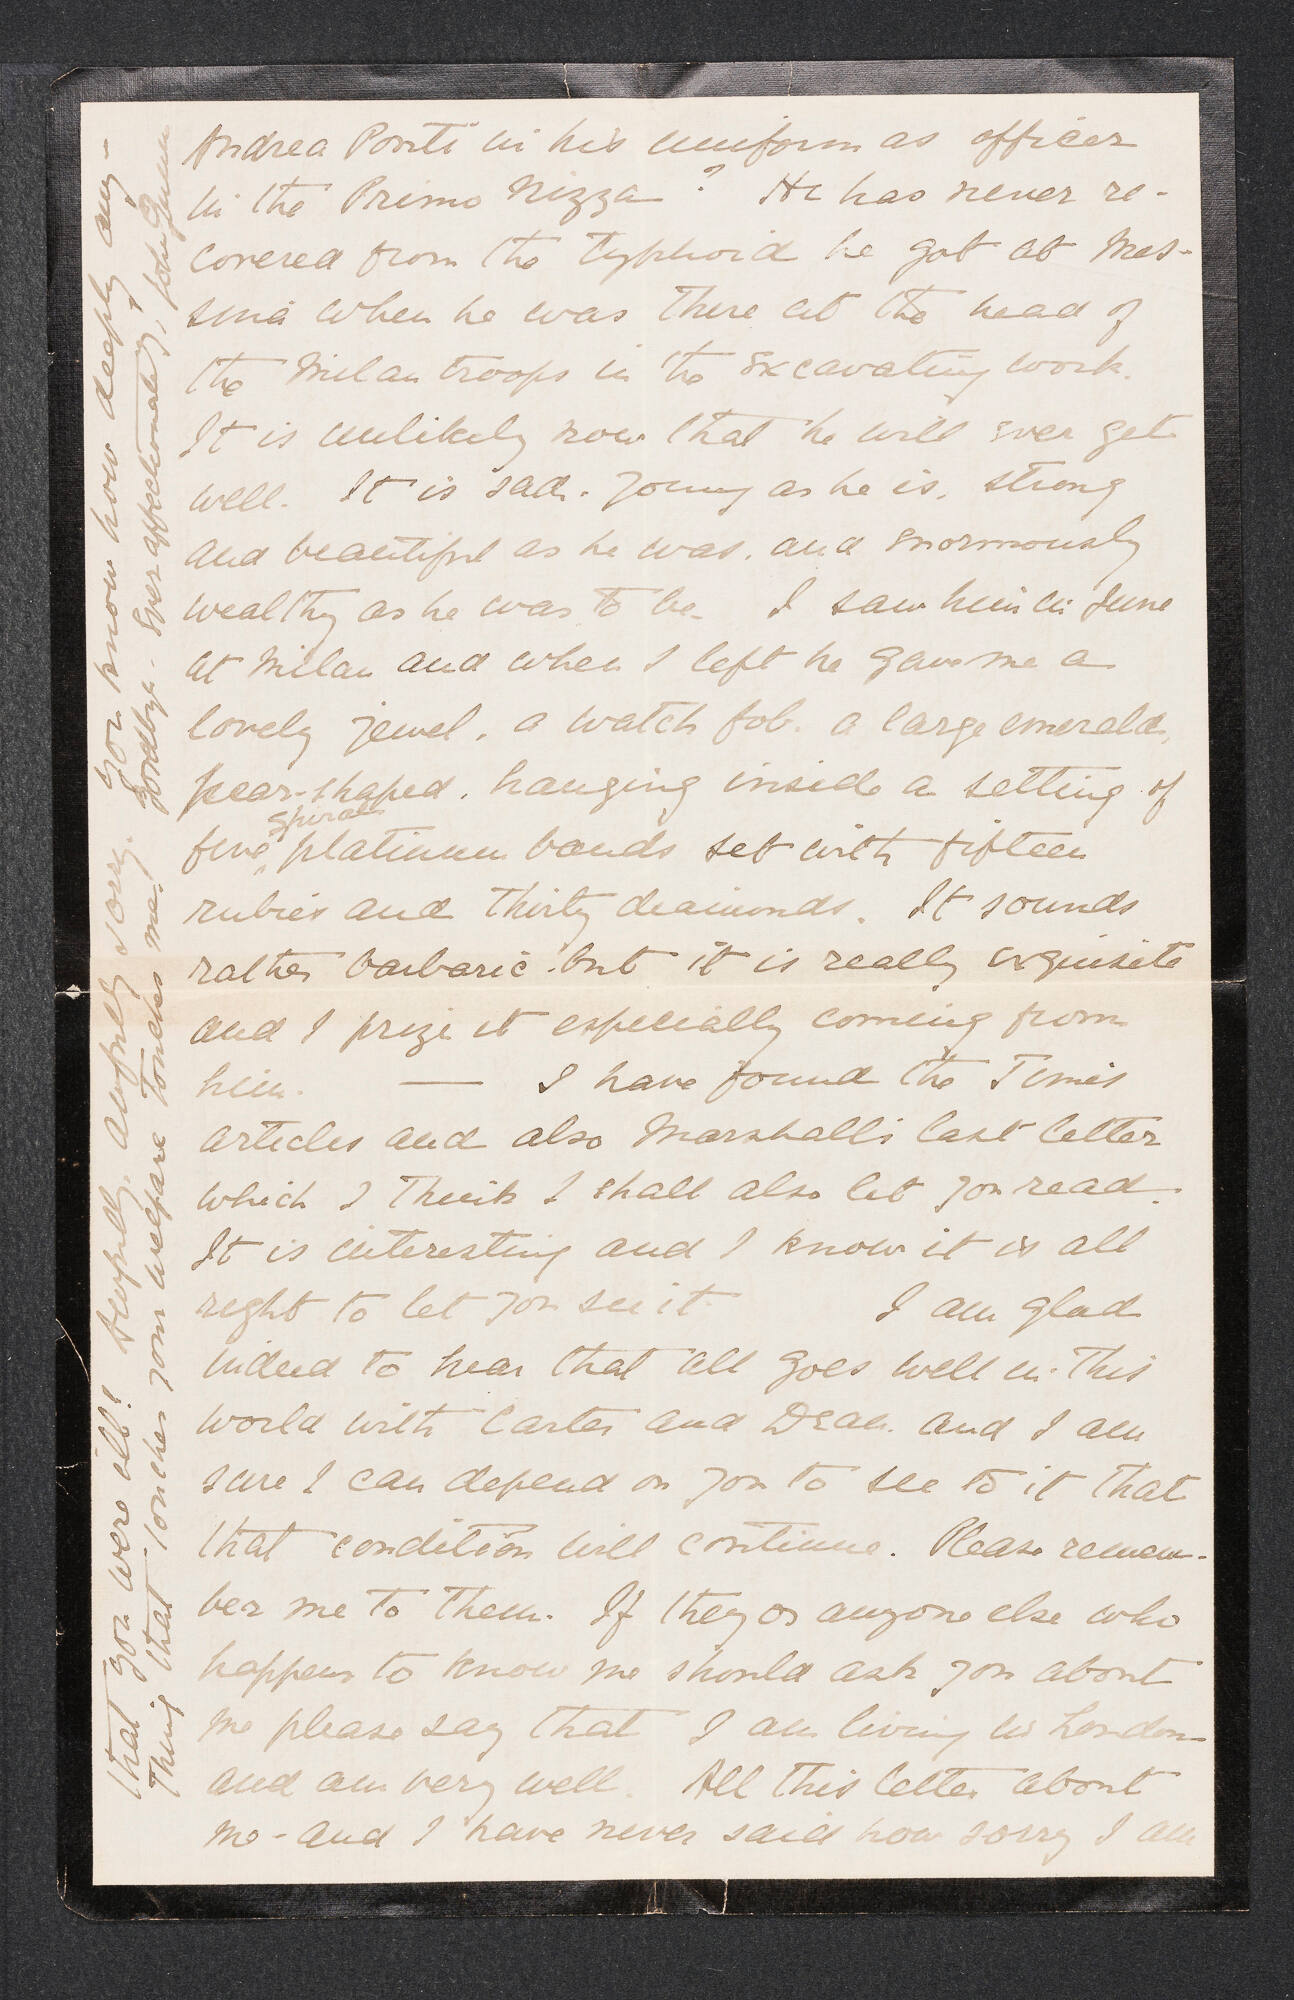 Andrea Ponti in his uniform as officer
in the Primo Nizza? He has never re-
covered from the typhoid he got at Mes-
sina when he was there at the head of
the Milan troops in the excavating work.
It is unlikely now that he will ever get
well. It is sad. Young as he is, strong
and beautiful as he was, and enormously
wealthy as he was to be. I saw him in June
at Milan and when I left he gave me a
lovely jewel, a watch fob. a large emerald,
pear-shaped, hanging inside a setting of
spiral
five platinum bands set with fifteen
rubies and thirty diamonds. It sounds
rather barbaric but it is really exquisite
and I prize it especially coming from
him. — I have found the Times
articles and also Marshall's last letter
which I think I shall also let you read.
It is interesting and I know it is all
right to let you see it. I am glad
indeed to hear that all goes well in this
world with Carter and Dean. and I am
sure I can depend on you to see to it that
that condition will continue. Please remem-
ber me to them. If they or anyone else who
happens to know me should ask you about
me please say that I am living in London
and am very well. All this letter about
me - and I have never said how sorry I am
that you were ill! Awfully, awfully sorry. You know how deeply any-
thing that touches your welfare touches me. Goodbye. Ever affectionately, John